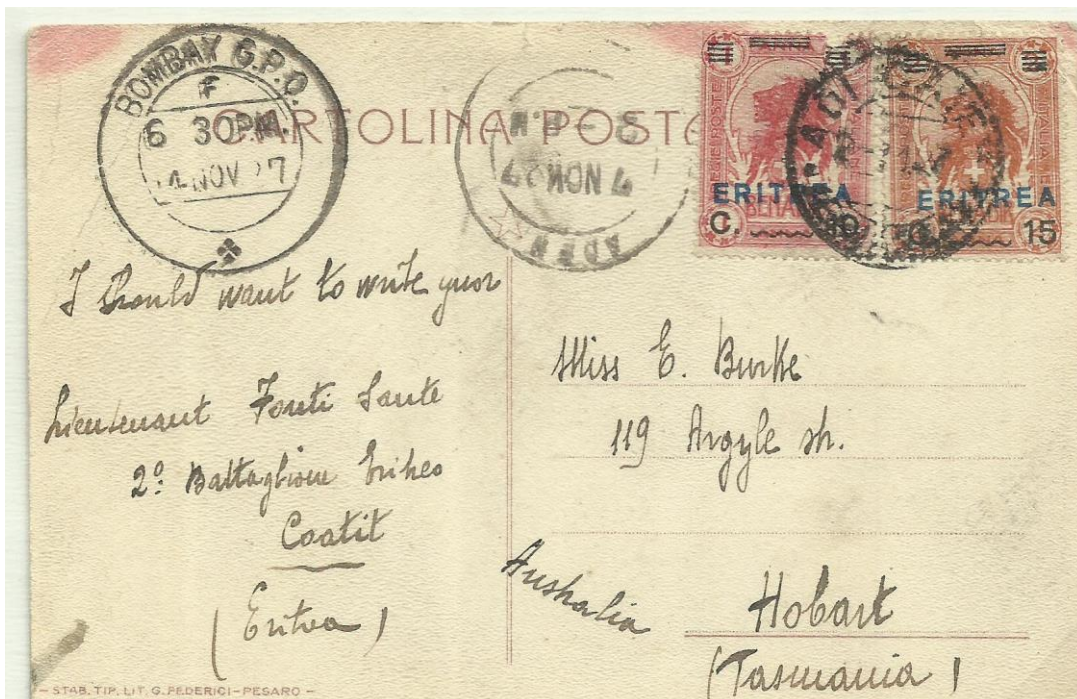 BOMBAY G.P.O.
F
6 30 P.M.
14 NOV 27
CARTOLINA POSTA
ADEN
7 NOV 27
ERITREA
C. 10
ERITREA
15
ADI CAIE
I should want to write your
Lieutenant Fonti Sante
2º Battaglione Eritreo
Coatit
(Eritrea)
Miss E. Burke
119 Argyle str.
Australia
Hobart
(Tasmania)
- STAB. TIP. LIT. G. FEDERICI - PESARO -